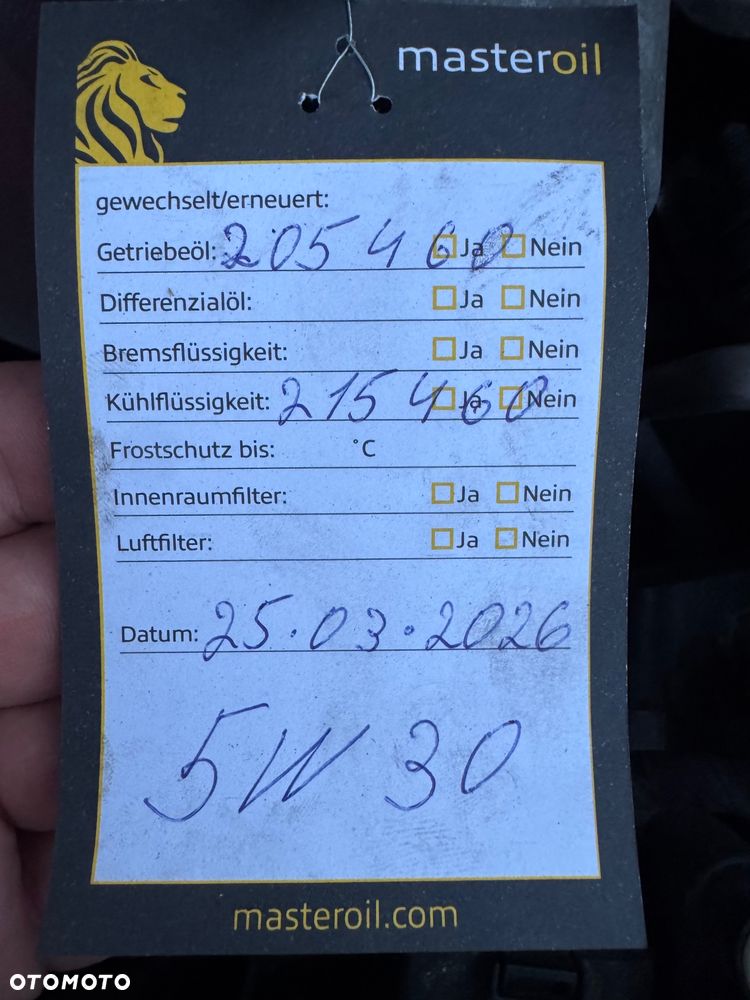 masteroil
gewechselt/erneuert:
Getriebeöl: 205 460 Ja Nein
Differenzialöl: Ja Nein
Bremsflüssigkeit: Ja Nein
Kühlflüssigkeit: 215 460 Ja Nein
Frostschutz bis: °C
Innenraumfilter: Ja Nein
Luftfilter: Ja Nein
Datum: 25.03.2026
5W30
masteroil.com
OTOMOTO